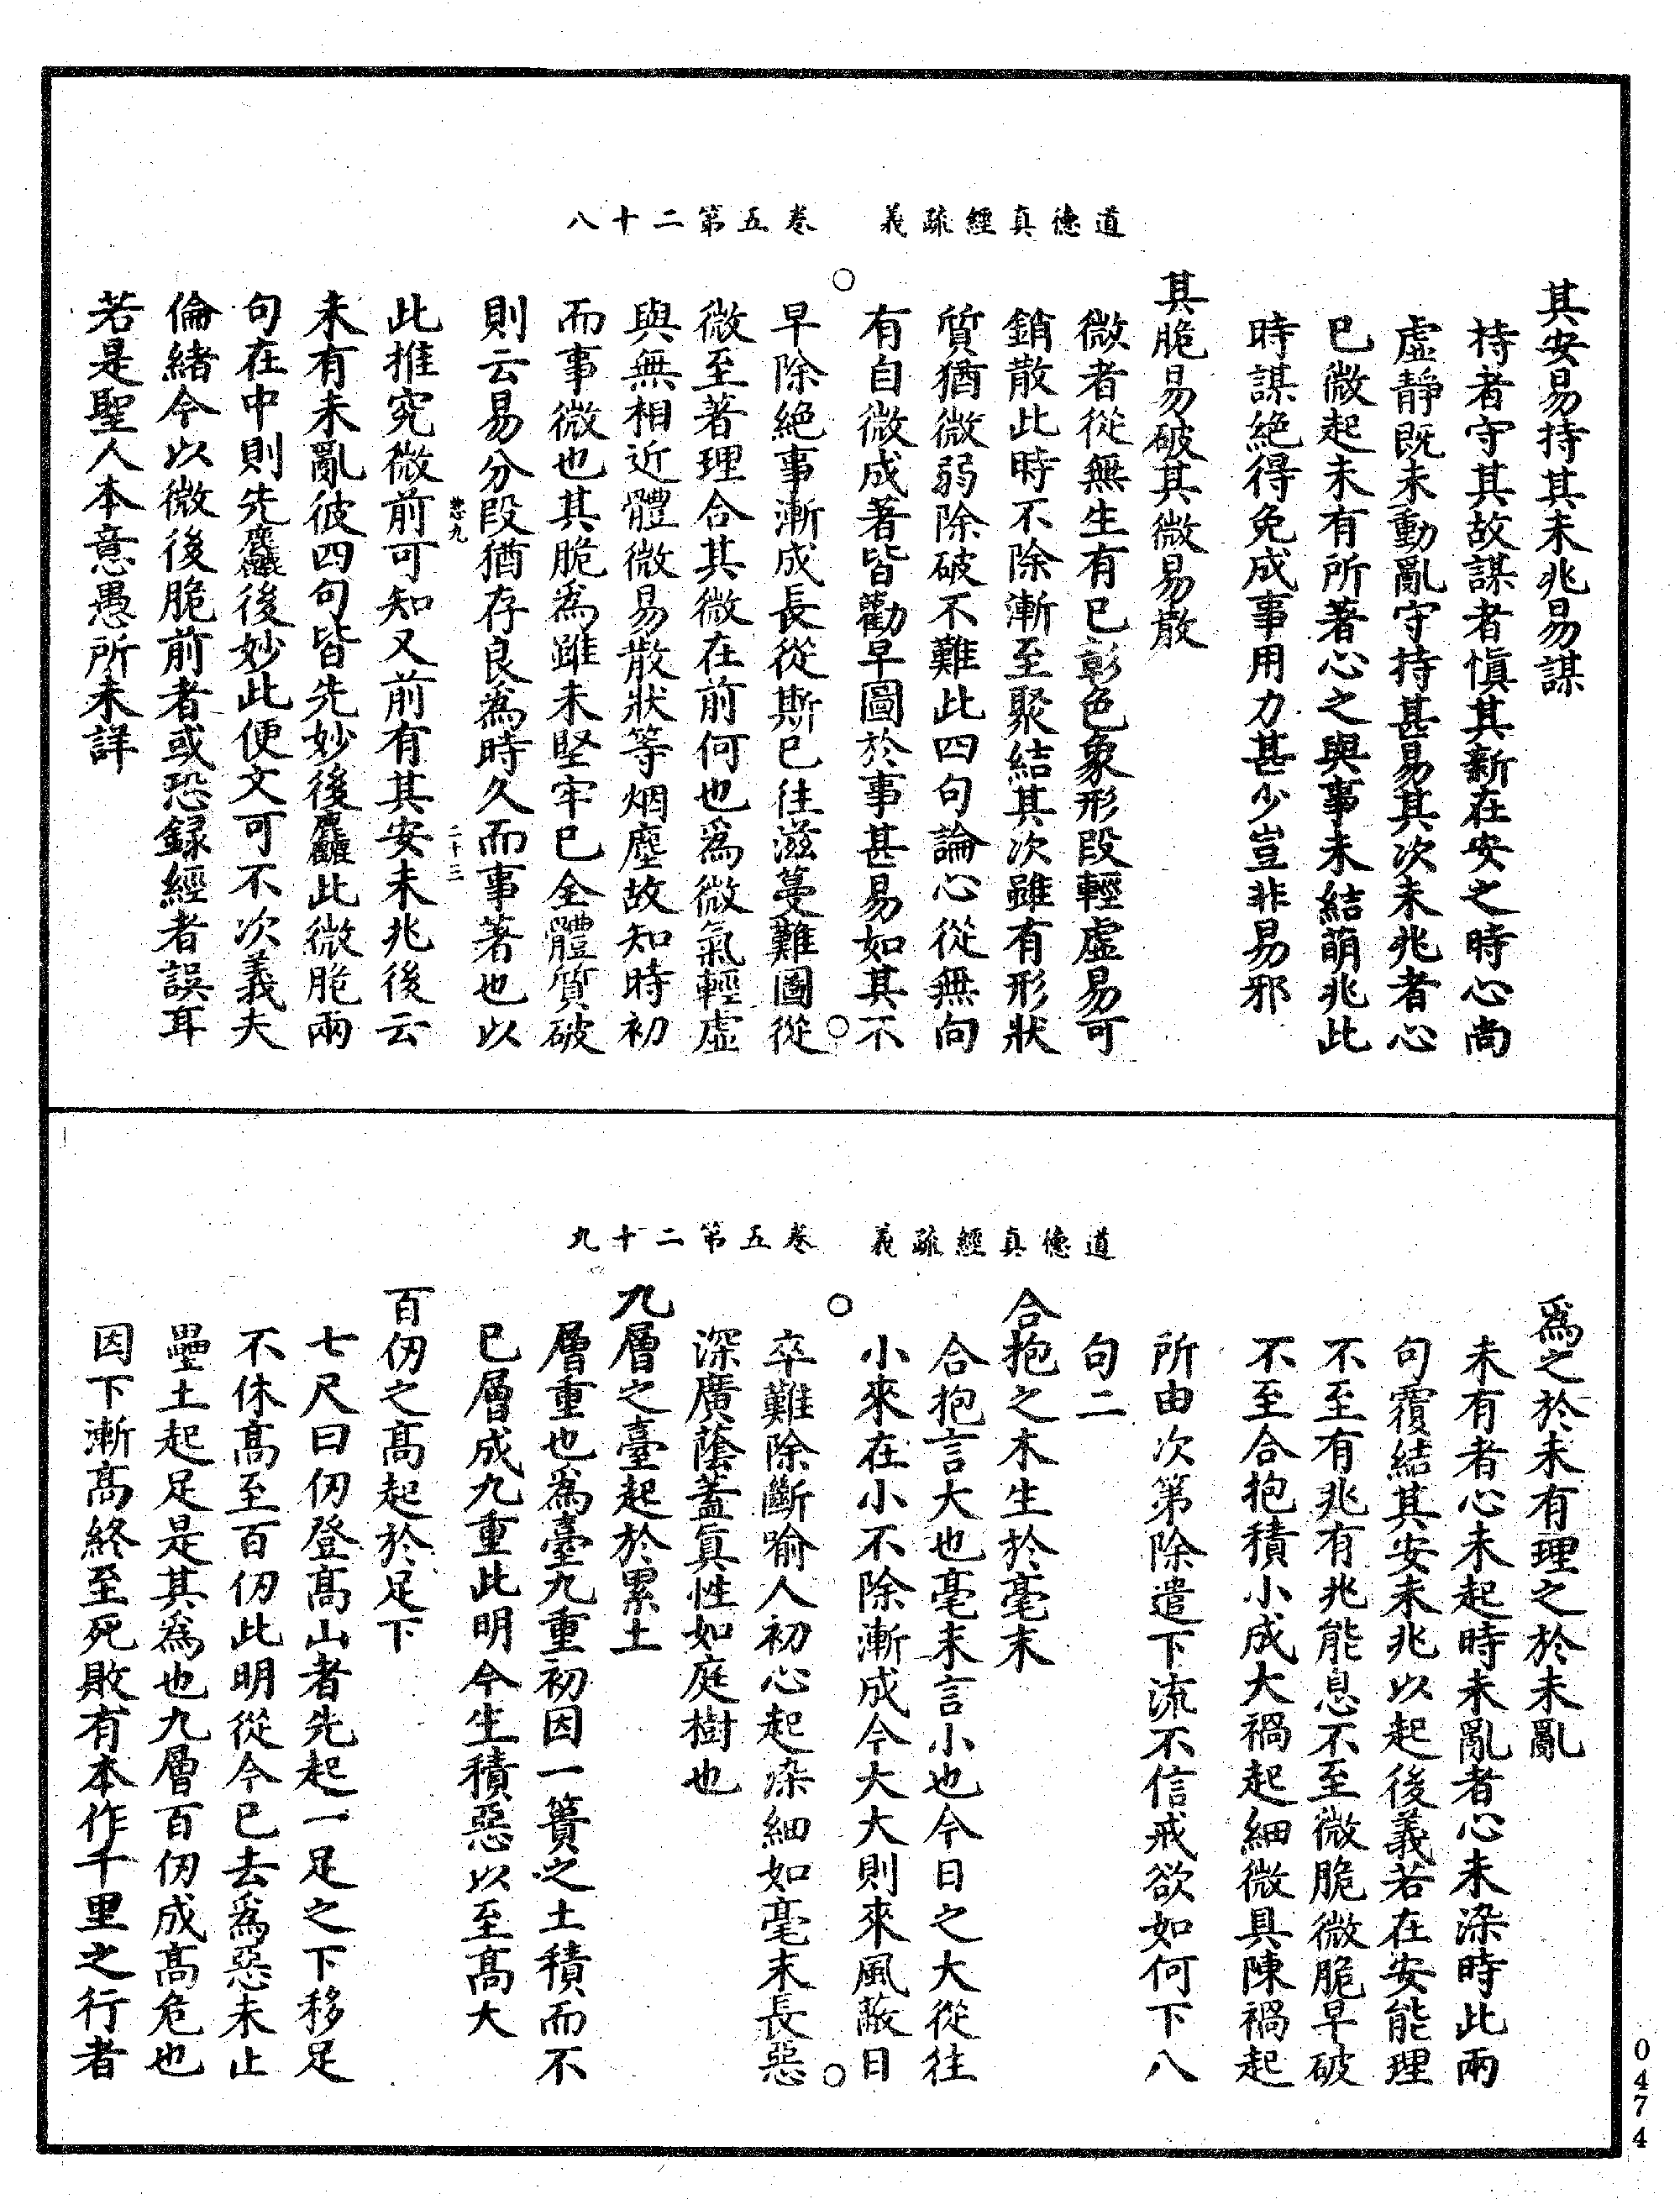 道德真經疏義　卷五第二十八
其安易持其未兆易謀
持者守其故謀者慎其新在安之時心尚
虛靜既未動亂守持甚易其次未兆者心
已微起未有所著心之與事未結萌兆此
時謀絕得免成事用力甚少豈非易邪
其脆易破其微易散
微者從無生有已彰色象形段輕虛易可
銷散此時不除漸至聚結其次雖有形狀
質猶微弱除破不難此四句論心從無向
有自微成著皆勸早圖於事甚易如其不
早除絕事漸成長從斯已往滋蔓難圖從
微至著理合其微在前何也為微氣輕虛
與無相近體微易散狀等烟塵故知時初
而事微也其脆為雖未堅牢已全體質破
則云易分段猶存良為時久而事著也以
悲九　二十三
此推究微前可知又前有其安未兆後云
未有未亂彼四句皆先妙後麤此微脆兩
句在中則先麤後妙此便文可不次義夫
倫緒今以微後脆前者或恐録經者誤耳
若是聖人本意愚所未詳
道德真經疏義　卷五第二十九
為之於未有理之於未亂
未有者心未起時未亂者心未染時此兩
句覆結其安未兆以起後義若在安能理
不至有兆有兆能息不至微脆微脆早破
不至合抱積小成大禍起細微具陳禍起
所由次第除遣下流不信戒欲如何下八
句二
合抱之木生於毫末
合抱言大也毫末言小也今日之大從往
小來在小不除漸成今大大則來風蔽日
卒難除斷喻人初心起染細如毫末長惡
深廣蔭蓋真性如庭樹也
九層之臺起於累土
層重也為臺九重初因一簣之土積而不
已層成九重此明今生積惡以至高大
百仞之高起於足下
七尺曰仞登高山者先起一足之下移足
不休高至百仞此明從今已去為惡未止
壘土起足是其為也九層百仞成高危也
因下漸高終至死敗有本作千里之行者
0474